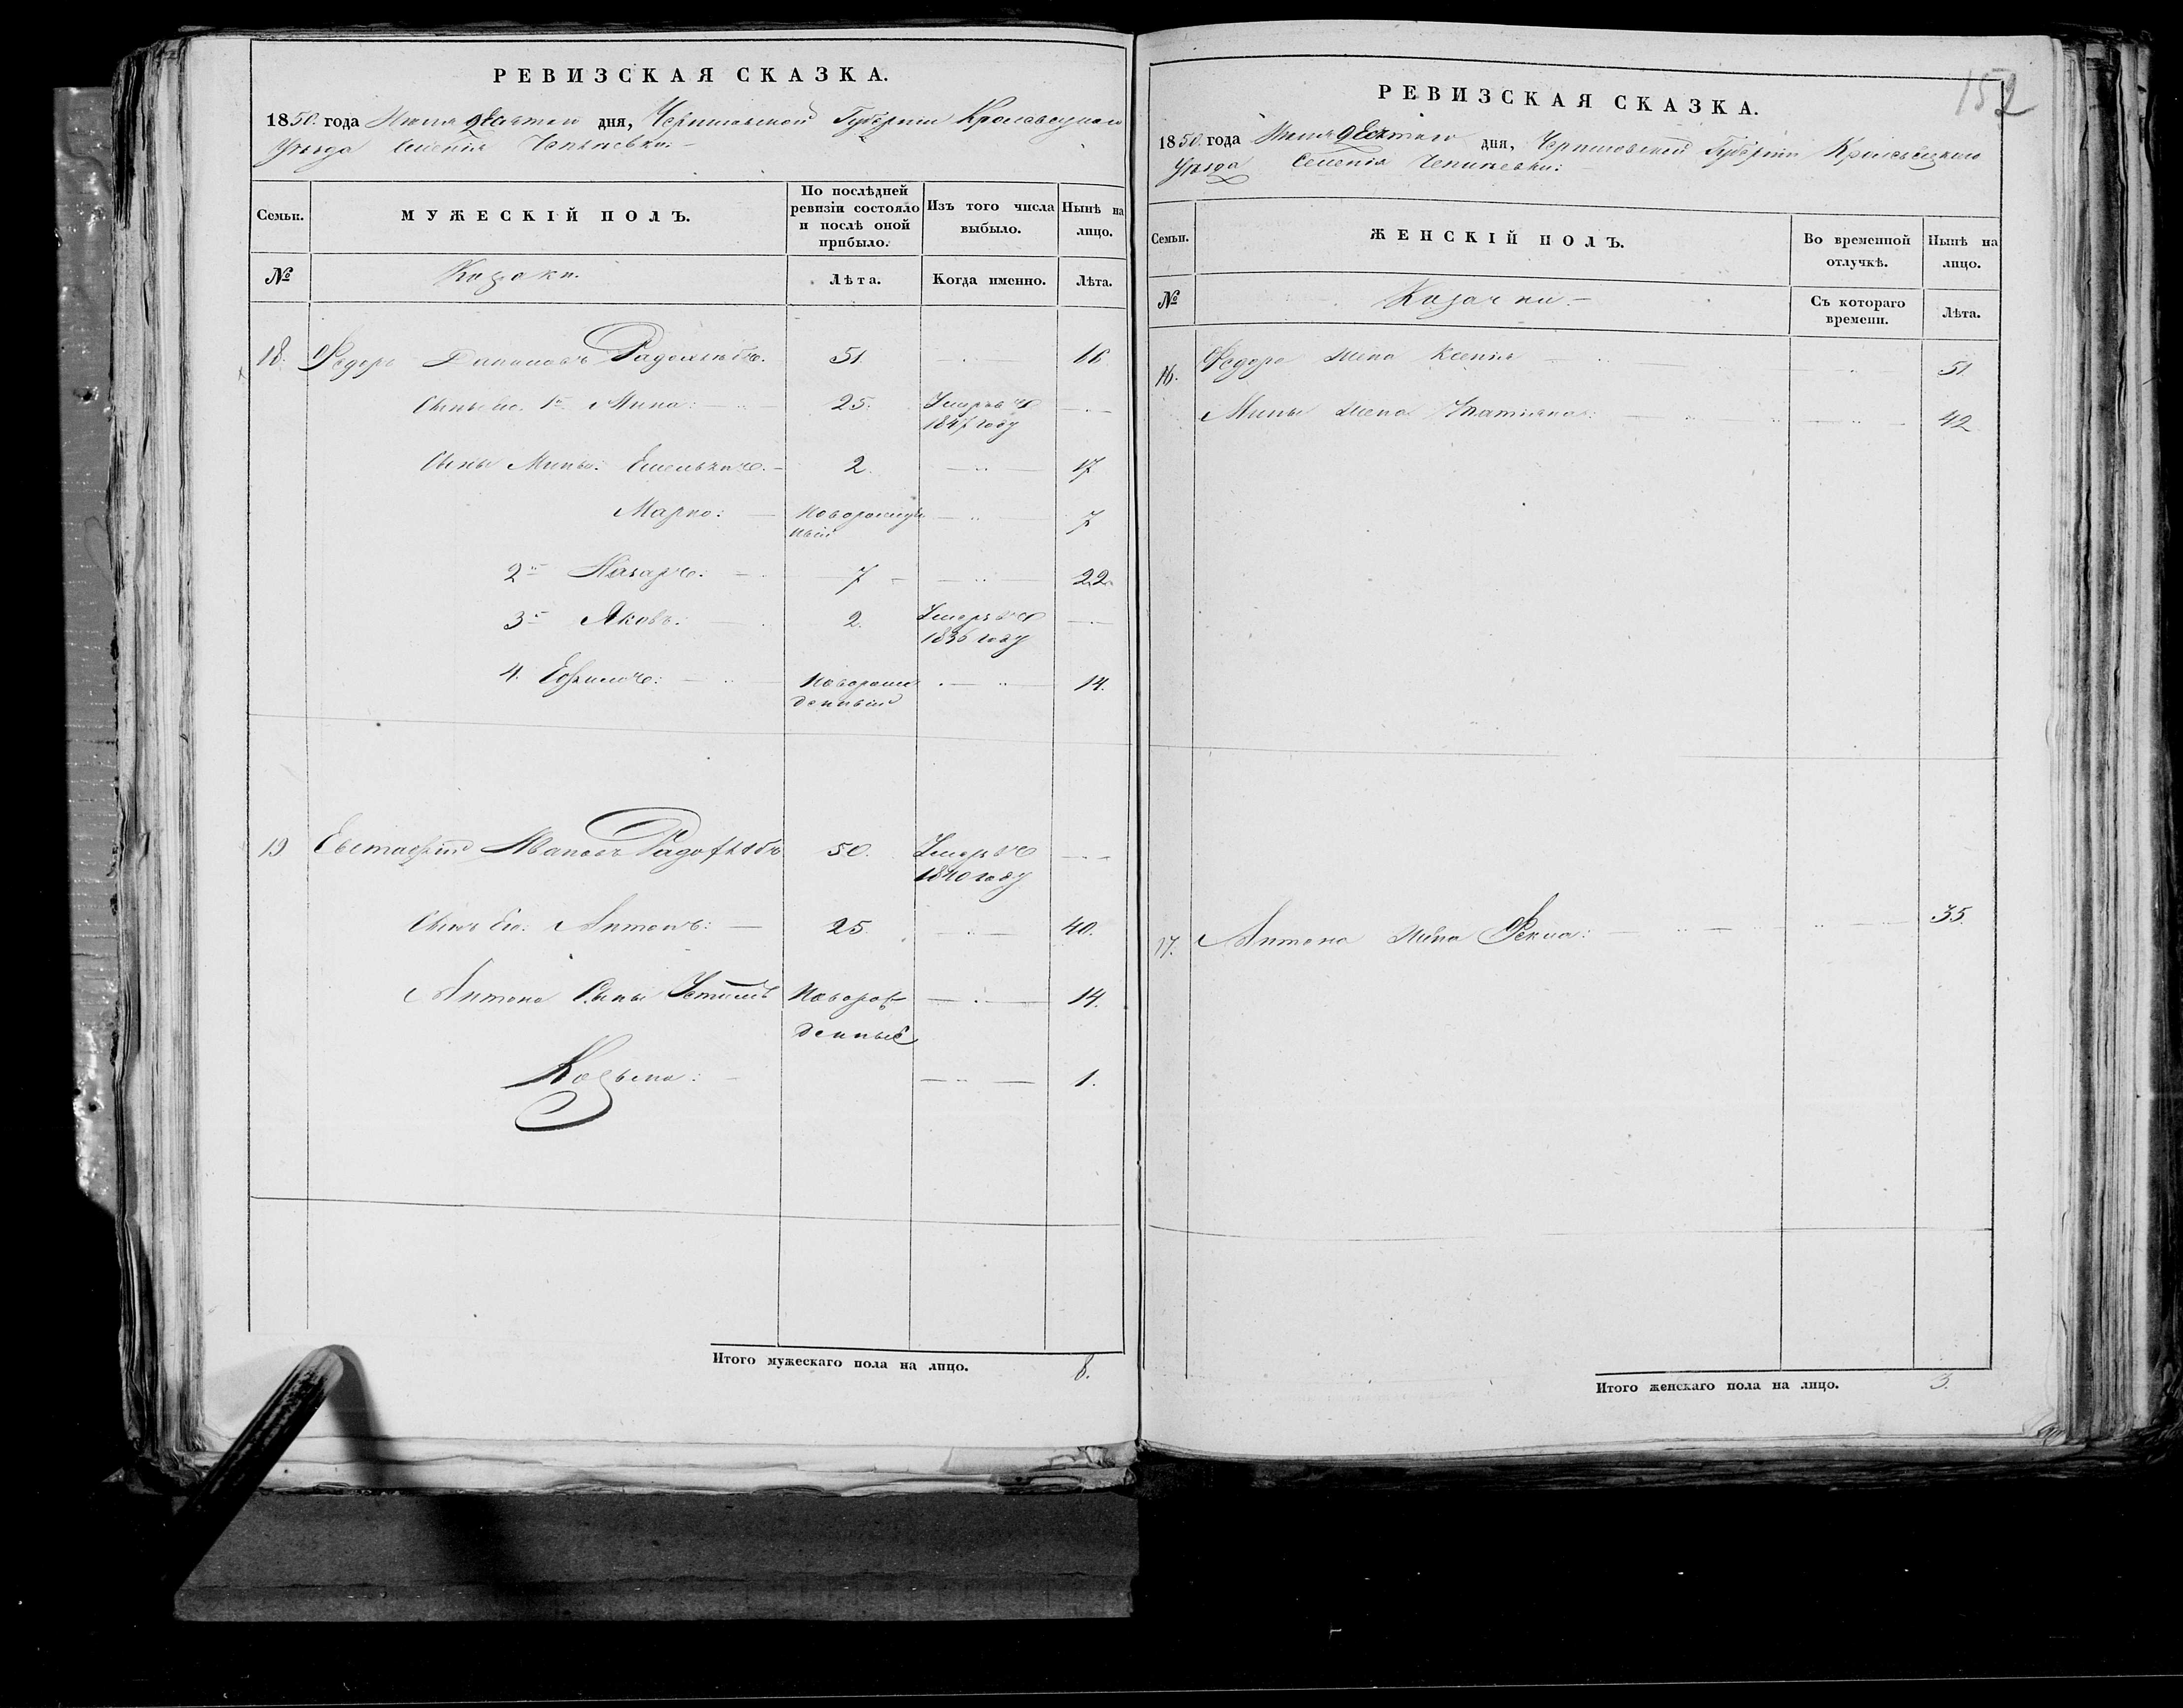 РЕВИЗСКАЯ СКАЗКА.
1850. года дня, Черниговской Губернии Кролевецкого
Уѣзда Селенія
Семьи.
МУЖЕСКІЙ ПОЛЪ.
По послѣдней ревизіи состояло и послѣ оной прибыло.
Изъ того числа выбыло.
Нынѣ на лицо.
№
Козаки.
Лѣта.
Когда именно.
Лѣта.
18. Федоръ 51.
Сыновья его. 1й Мина: 25. Умеръ въ
1847 году
Сыны Мины: Емельянъ. 2. 17
Марко: Новорожден
ный 7
2й Назаръ: 7 22.
3й Яковъ: 2. Умеръ въ
1836 году
4. Ефимъ: Новорож
денный 14.
19 Евстафій Ивановъ 50. Умеръ въ
1840 году
Сынъ его: Антонъ: 25. 40.
Антона Сыны Устимъ Новорож
денный 14.
Козьма: 1.
Итого мужескаго пола на лицо. 8.
152
РЕВИЗСКАЯ СКАЗКА.
1850. года дня, Черниговской Губерніи Кролевецкого
Уѣзда Селенія
Семьи.
ЖЕНСКІЙ ПОЛЪ.
Во временной отлучкѣ.
Нынѣ на лицо.
№
Козачки.
Съ котораго времени.
Лѣта.
16. Федора жена Ксенія 51.
Мины жена Татіяна: 42
17. Антона жена Фекла: 35
Итого женскаго пола на лицо. 3.